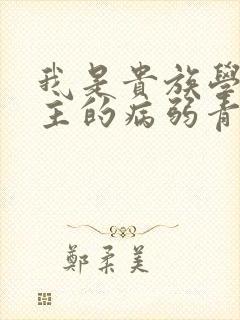 我是貴族學
主的病弱青
鄭柔美